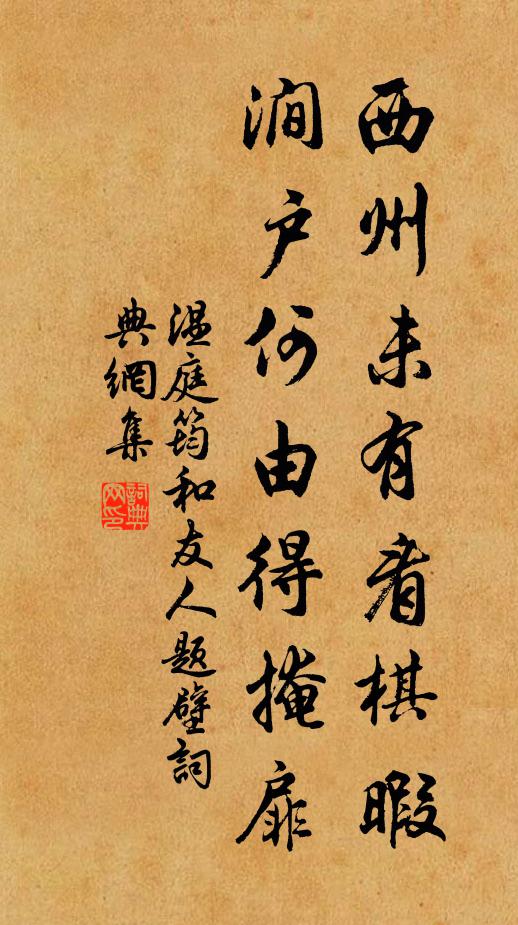 西州未有看棋暇
澗户何由得掩扉
温庭筠和友人题壁詞
典網集
詞典
网印